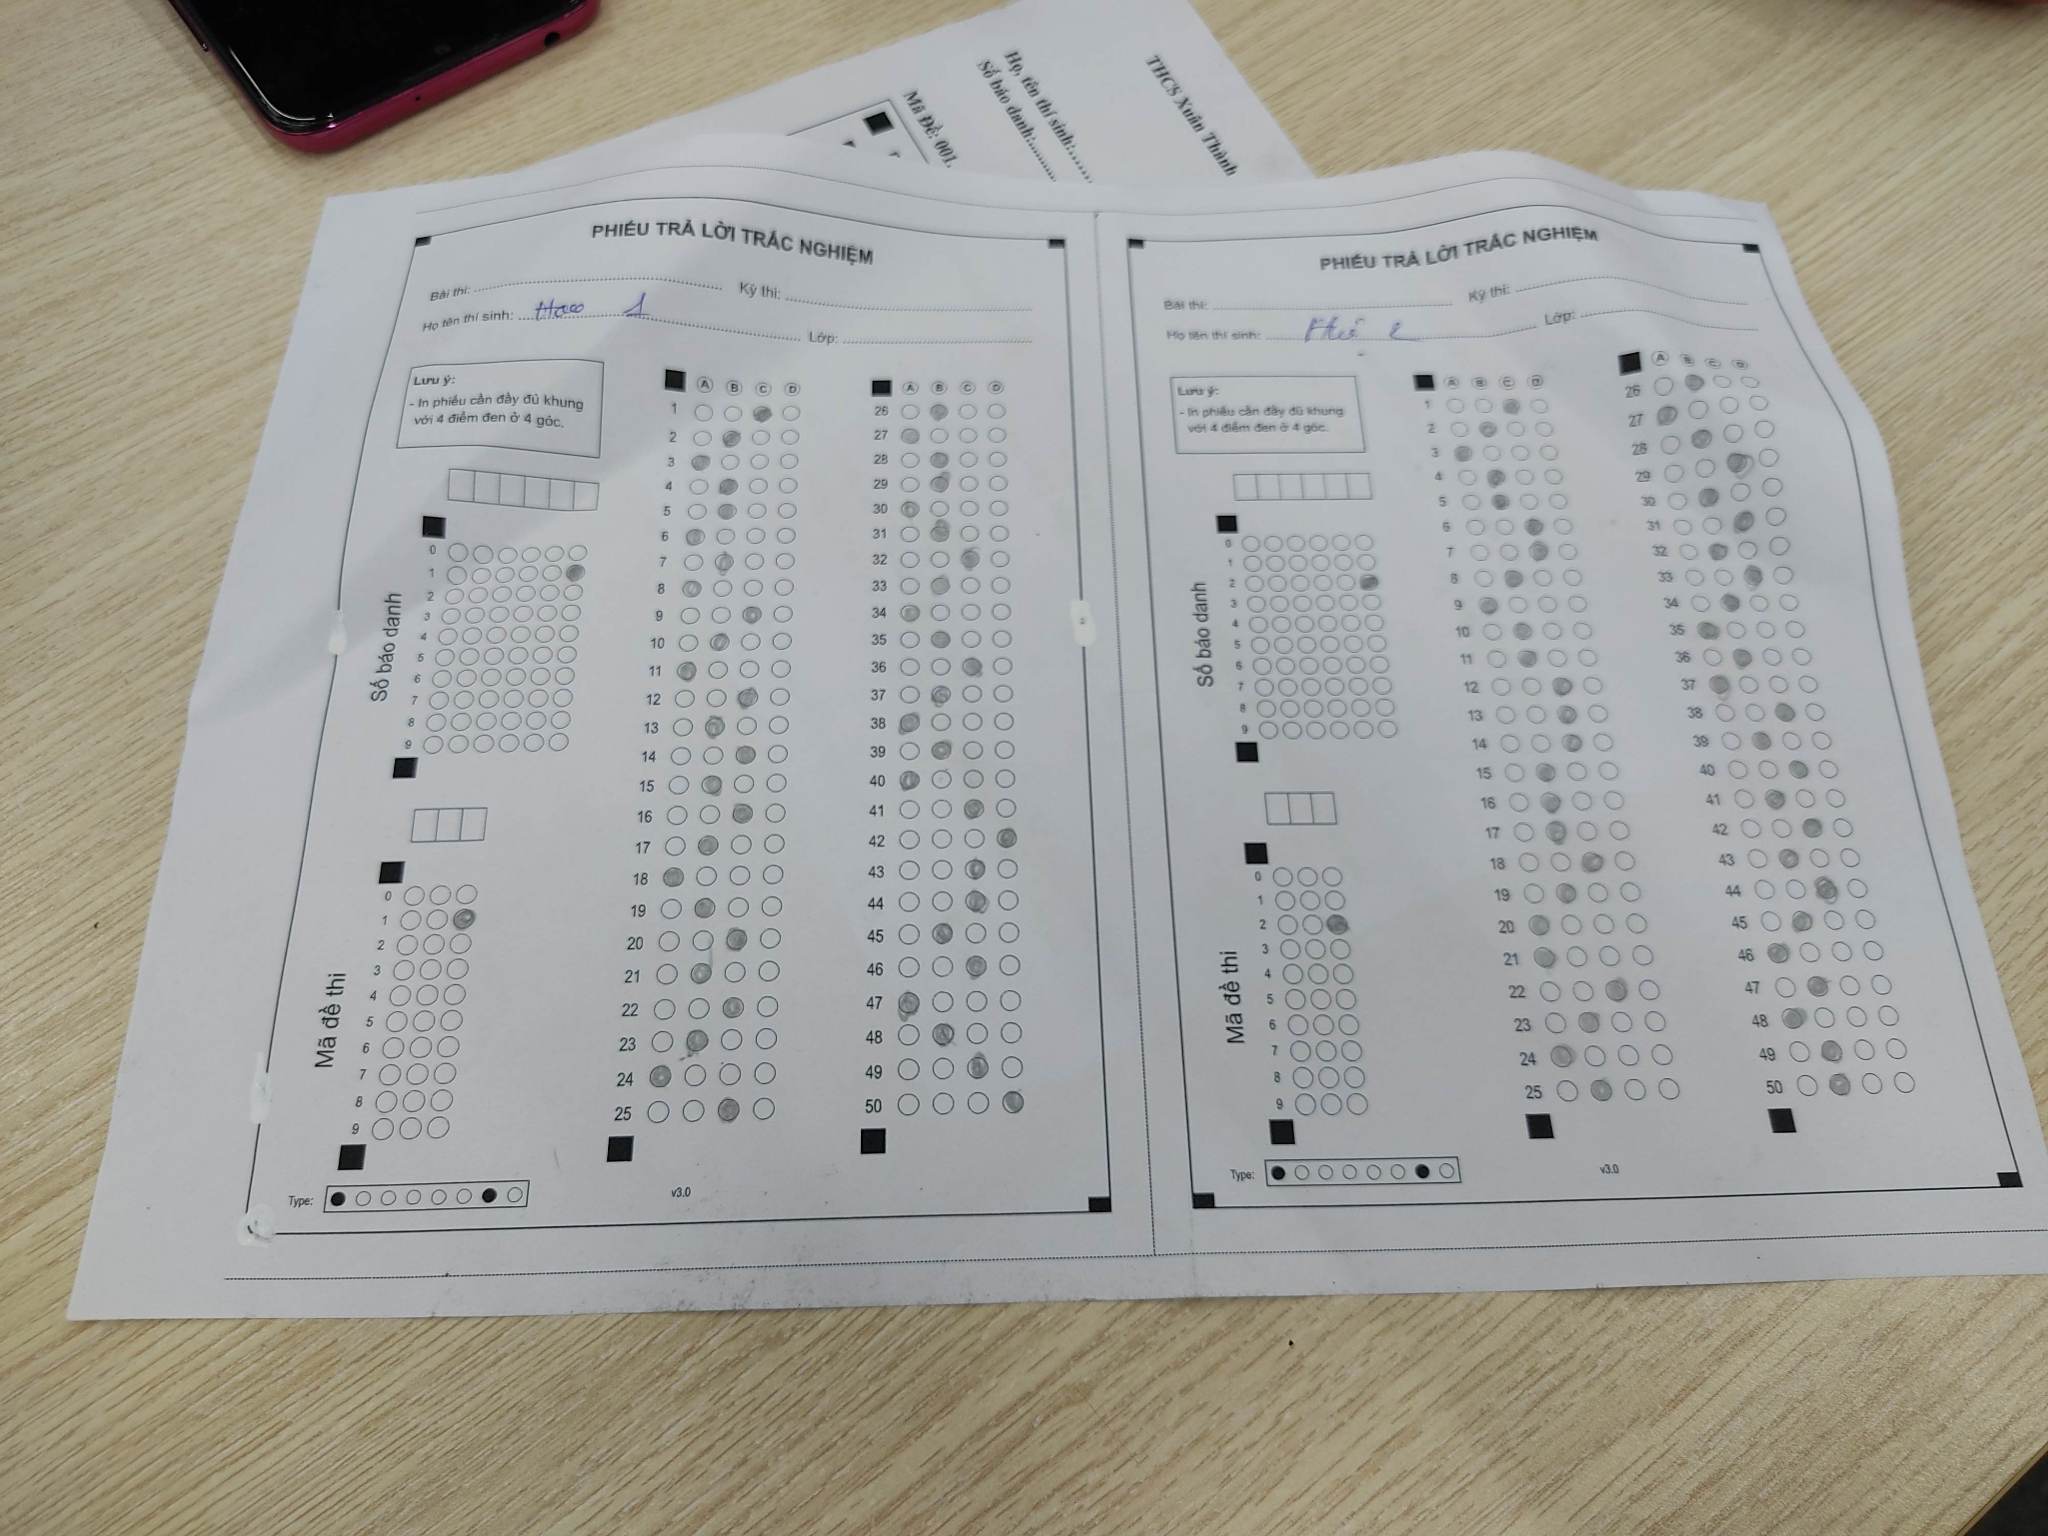 THCS Xuân Thành
Họ, tên thí sinh:......
Số báo danh:..........
Mã Đề: 001.
PHIẾU TRẢ LỜI TRẮC NGHIỆM
Bài thi: Kỳ thi:
Họ tên thí sinh: 1 Lớp:
Lưu ý:
- In phiếu cần đầy đủ khung
với 4 điểm đen ở 4 góc.
Số báo danh
0
1
2
3
4
5
6
7
8
9
Mã đề thi
0
1
2
3
4
5
6
7
8
9
A B C D
1
2
3
4
5
6
7
8
9
10
11
12
13
14
15
16
17
18
19
20
21
22
23
24
25
A B C D
26
27
28
29
30
31
32
33
34
35
36
37
38
39
40
41
42
43
44
45
46
47
48
49
50
Type:
v3.0
PHIẾU TRẢ LỜI TRẮC NGHIỆM
Bài thi: Kỳ thi:
Họ tên thí sinh: 2 Lớp:
Lưu ý:
- In phiếu cần đầy đủ khung
với 4 điểm đen ở 4 góc.
Số báo danh
0
1
2
3
4
5
6
7
8
9
Mã đề thi
0
1
2
3
4
5
6
7
8
9
A B C D
1
2
3
4
5
6
7
8
9
10
11
12
13
14
15
16
17
18
19
20
21
22
23
24
25
A B C D
26
27
28
29
30
31
32
33
34
35
36
37
38
39
40
41
42
43
44
45
46
47
48
49
50
Type:
v3.0